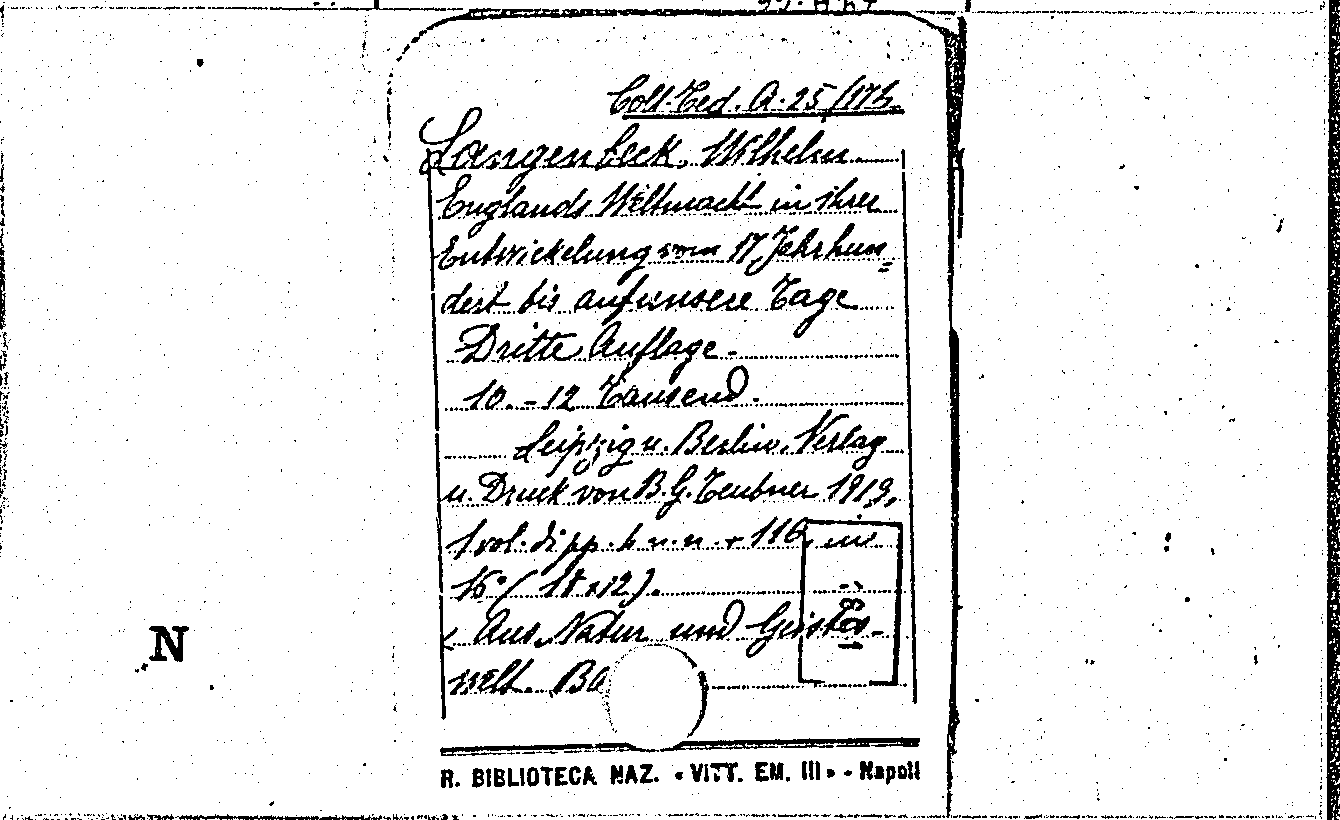 Coll. Ted. A. 25/174.
Langenbeck, Wilhelm.
Englands Weltmacht in ihrer
Entwickelung vom 17. Jahrhun=
dert bis auf unsere Tage
Dritte Auflage.
10.-12 Tausend.
Leipzig u. Berlin, Verlag
u. Druck von B. G. Teubner 1919,
1 vol. di pp. h n. n. + 116, in
16° (18x12).
< Aus Natur und Geistes-
welt.
N
R. BIBLIOTECA NAZ. «VITT. EM. III» - Napoli